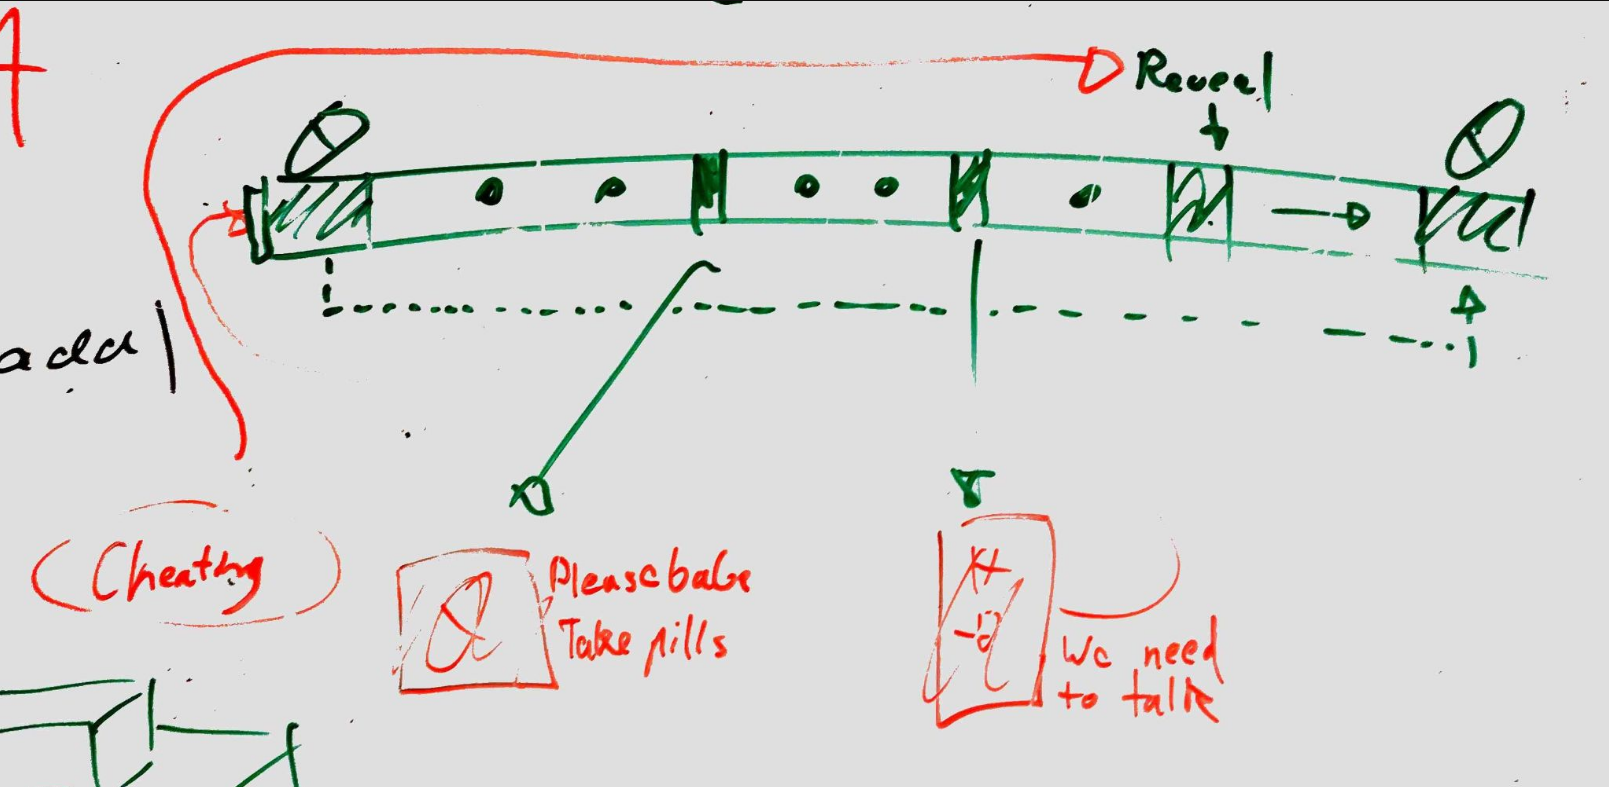 Reveal
Cheating
Please babe
Take pills
We need
to talk